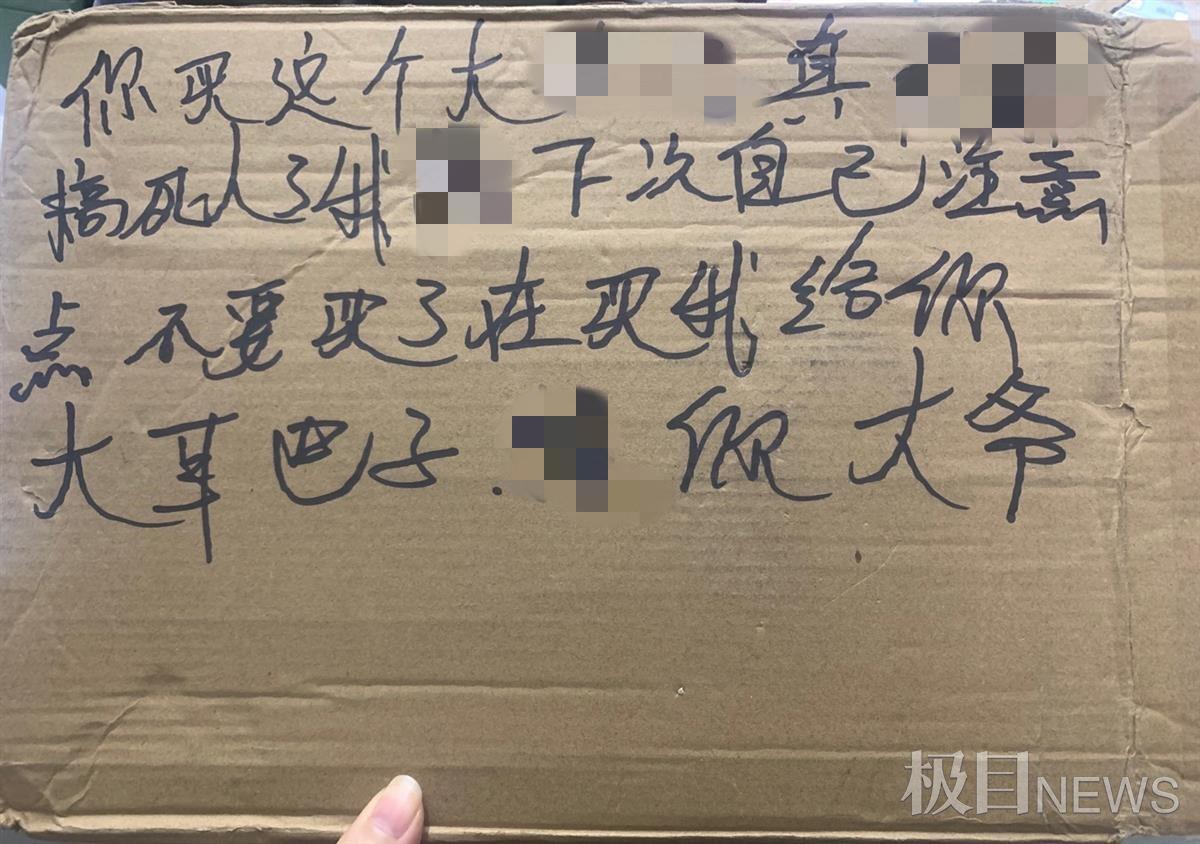 你买这个大 真
搞死人了我 下次自己注意
点不要买了在买我给你
大車巴子. 你大爷
极目NEWS